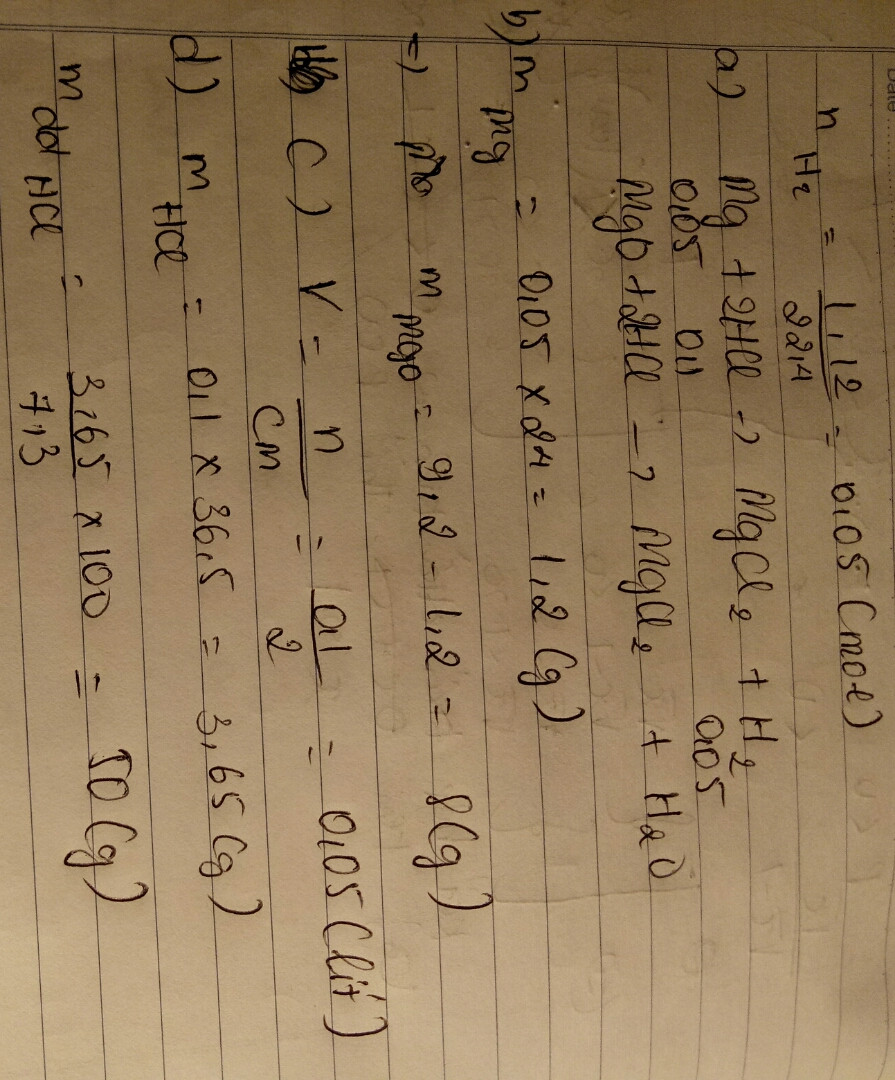 Date
n H₂ = 1,12 / 22,4 = 0,05 (mol)
a) Mg + 2HCl -> MgCl₂ + H₂
0,05 0,1 0,05
MgO + 2HCl -> MgCl₂ + H₂O
b) m Mg = 0,05 x 24 = 1,2 (g)
=> m MgO = 9,2 - 1,2 = 8 (g)
c) V = n / CM = 0,1 / 2 = 0,05 (lít)
d) m HCl = 0,1 x 36,5 = 3,65 (g)
m dd HCl = 3,65 / 7,3 x 100 = 50 (g)